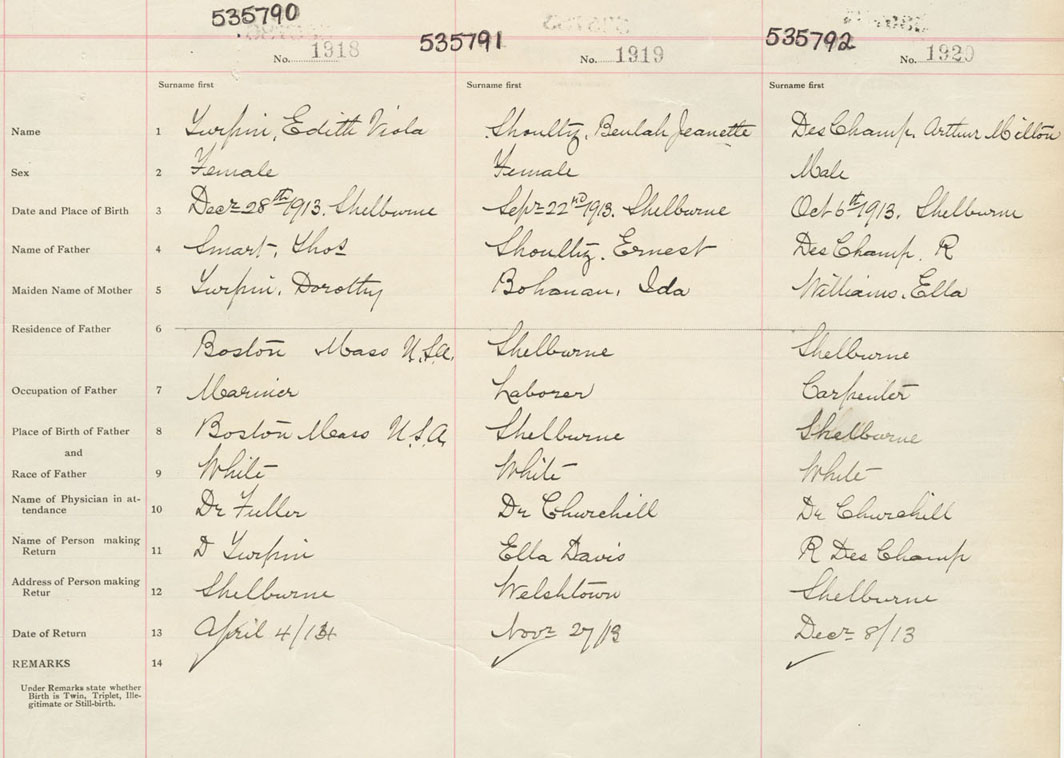 535790
535791
535792
No. 1918
No. 1919
No. 1920
Surname first
Surname first
Surname first
Name 1 Turpin, Edith Viola Shoultz, Beulah Jeanette DesChamp, Arthur Milton
Sex 2 Female Female Male
Date and Place of Birth 3 Decr 28th 1913. Shelburne Sepr 22nd 1913. Shelburne Oct 6th 1913. Shelburne
Name of Father 4 Smart, Thos Shoultz, Ernest DesChamp, R
Maiden Name of Mother 5 Turpin, Dorothy Bohanan, Ida Williams, Ella
Residence of Father 6 Boston Mass U.S.A. Shelburne Shelburne
Occupation of Father 7 Mariner Laborer Carpenter
Place of Birth of Father 8 Boston Mass U.S.A. Shelburne Shelburne
and
Race of Father 9 White White White
Name of Physician in at-
tendance 10 Dr Fuller Dr Churchill Dr Churchill
Name of Person making
Return 11 D Turpin Ella Davis R DesChamp
Address of Person making
Retur 12 Shelburne Welshtown Shelburne
Date of Return 13 April 4/14 Novr 27/13 Decr 8/13
REMARKS 14
Under Remarks state whether
Birth is Twin, Triplet, Ille-
gitimate or Still-birth.